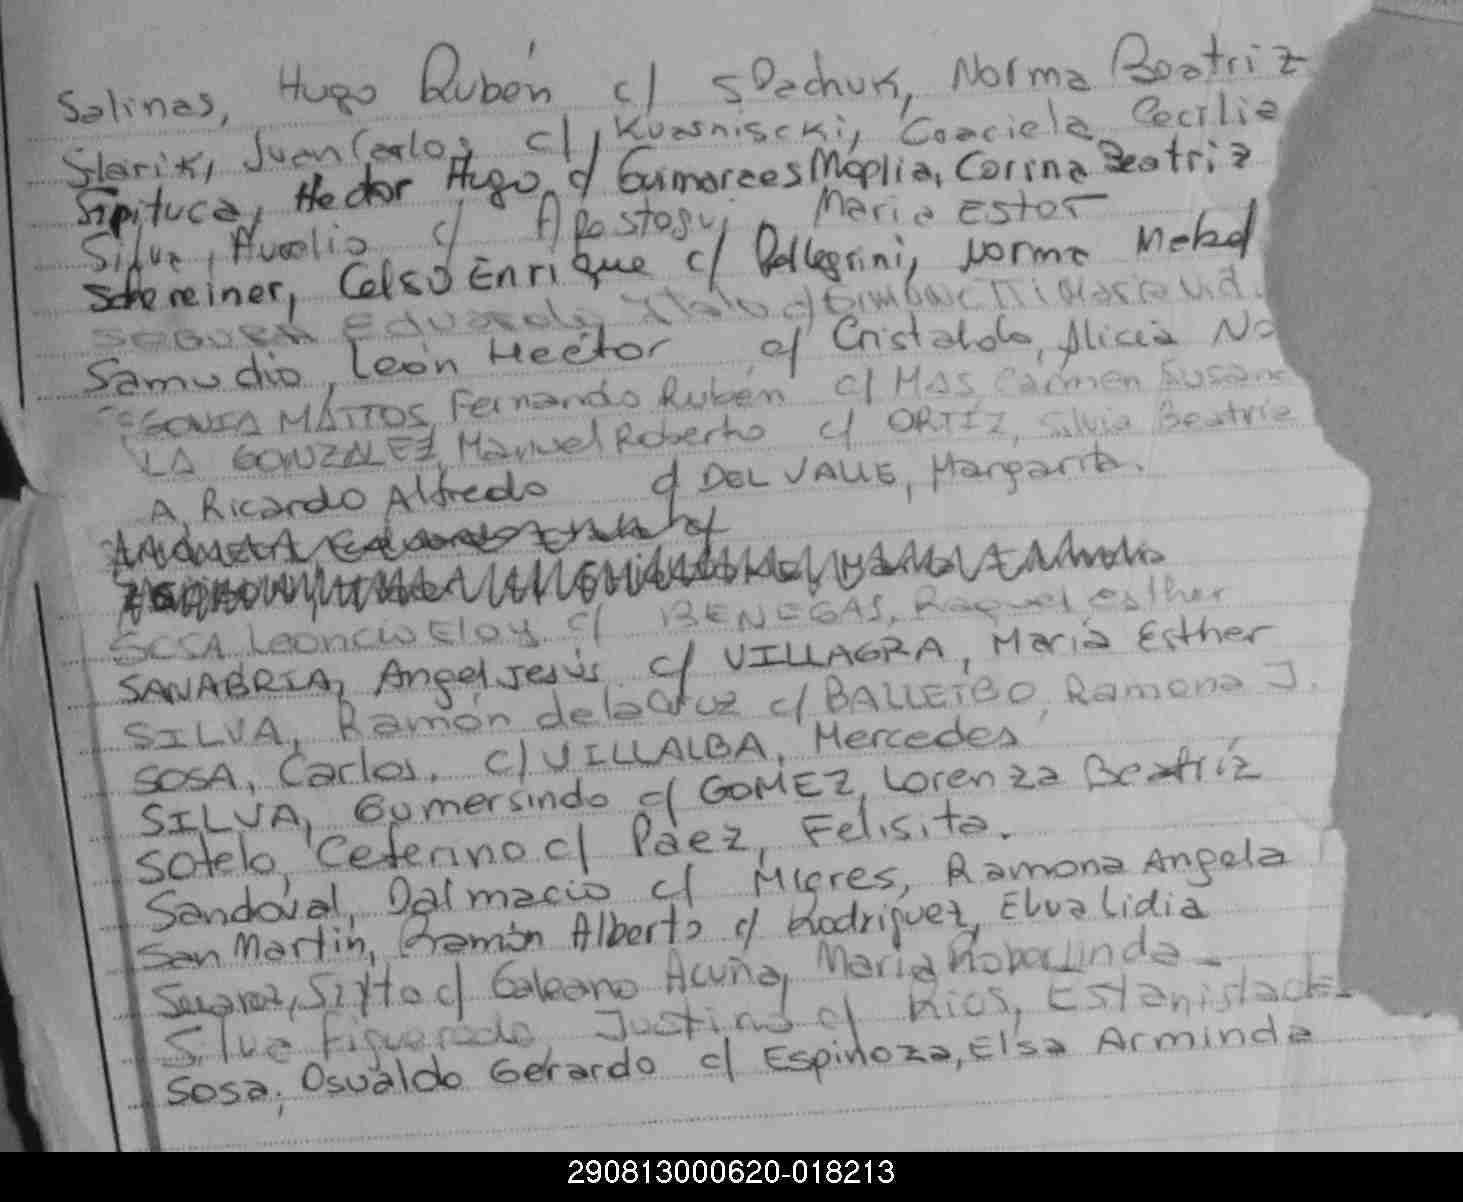 Salinas, Hugo Rubén c/ sDachuk, Norma Beatriz
Juan Carlos c/ Kuasniscki, Graciela Cecilia
Sipituca, Hector Hugo c/ Guimaraes Moplia, Corina Beatriz
Silva, Aurelio c/ Maria Ester
Schereiner, Celso Enrique c/ Pellegrini, Norma Mabel
Eduardo c/
Samudio, León Hector c/ Cristaldo, Alicia No
MATTOS, Fernando Rubén c/ MAS, Carmen Susana
LA GONZALEZ, Manuel Roberto c/ ORTÍZ, Silvia Beatriz
A, Ricardo Alfredo c/ DEL VALLE, Margarita.
SOSA Leoncio Eloy c/ BENEGAS, Raquel Esther
SANABRIA, Angel Jesús c/ VILLAGRA, María Esther
SILVA, Ramón de la Cruz c/ BALLEIBO, Ramona J.
SOSA, Carlos, c/ VILLALBA, Mercedes
SILVA, Gumersindo c/ GOMEZ, Lorenza Beatríz
Sotelo, Ceferino c/ Páez, Felisita.
Sandoval, Dalmacio c/ Migres, Ramona Angela
San Martín, Ramón Alberto c/ Rodriguez, Elva Lidia
Suarez, Sixto c/ Galeano Acuña, Maria
Silva Figueredo, Justino c/ Rios,
Sosa, Osvaldo Gerardo c/ Espinoza, Elsa Arminda
290813000620-018213